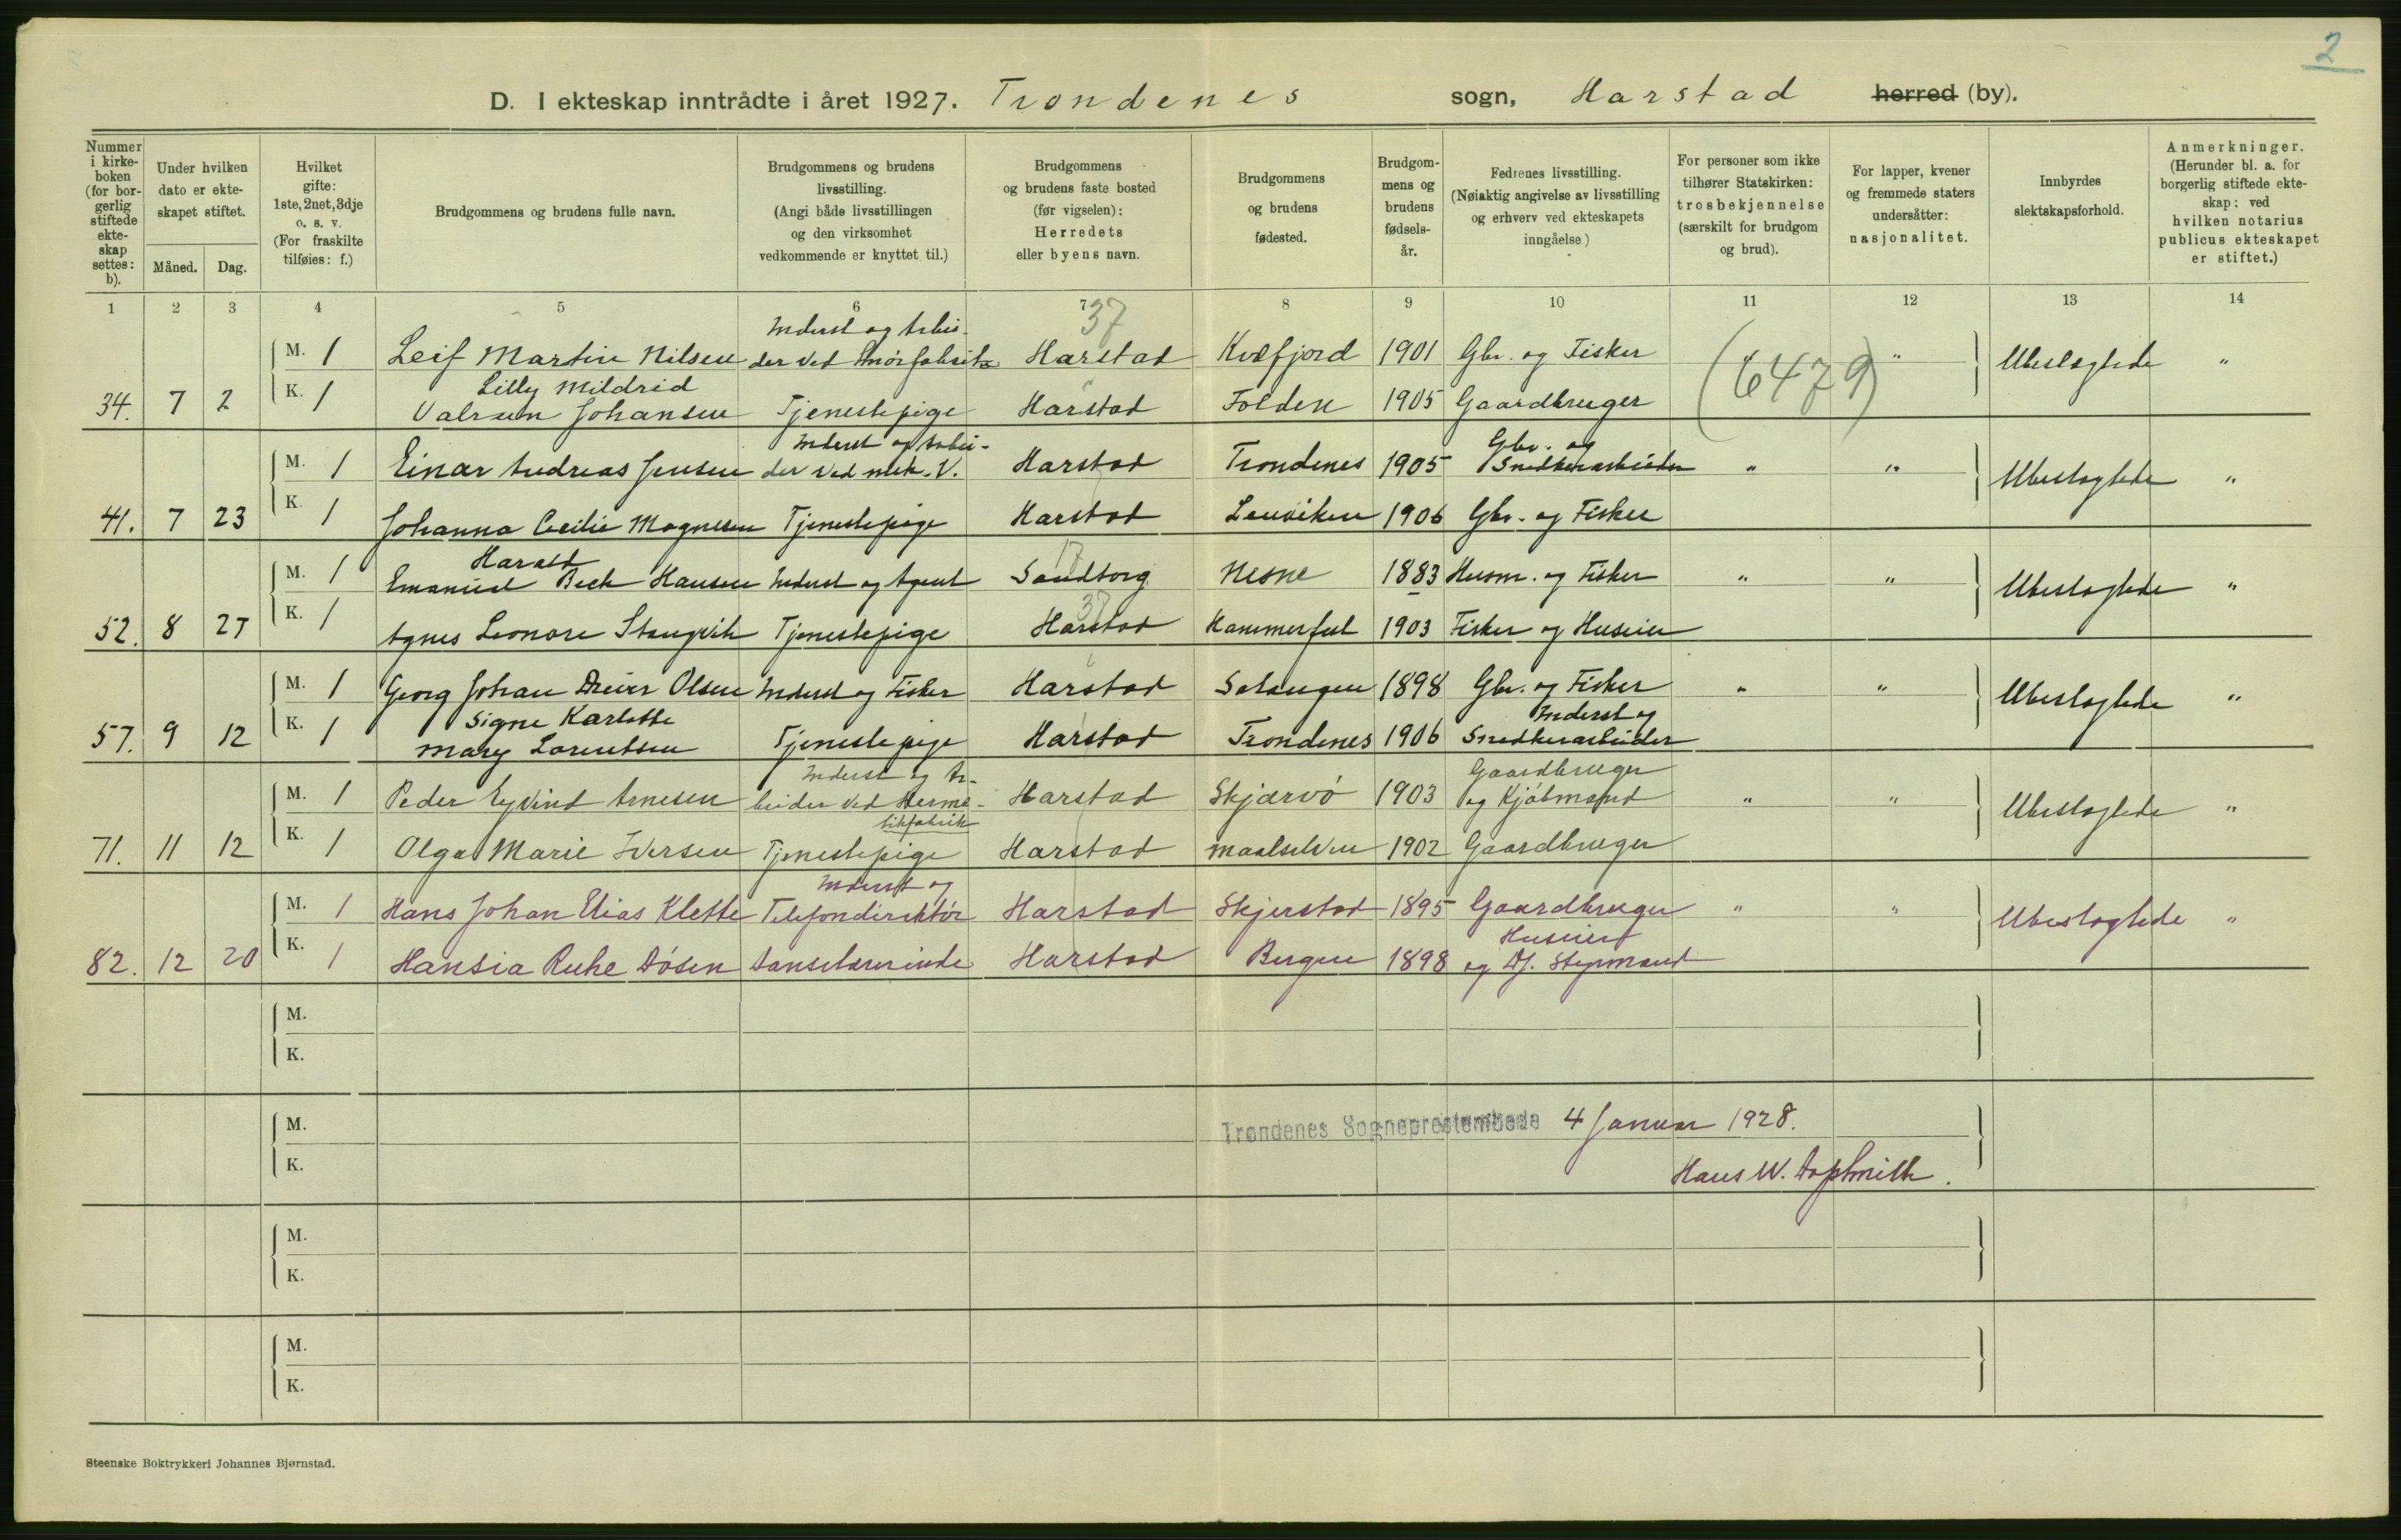 2
D. I ekteskap inntrådte i året 1927. Trondenes sogn, Harstad herred (by).
Nummer i kirkeboken (for borgerlig stiftede ekteskap settes: b).
Under hvilken dato er ekteskapet stiftet.
Måned. Dag.
Hvilket gifte: 1ste, 2net, 3dje o. s. v. (For fraskilte tilføies: f.)
Brudgommens og brudens fulle navn.
Brudgommens og brudens livsstilling. (Angi både livsstillingen og den virksomhet vedkommende er knyttet til.)
Brudgommens og brudens faste bosted (før vigselen): Herredets eller byens navn.
Brudgommens og brudens fødested.
Brudgommens og brudens fødselsår.
Fedrenes livsstilling. (Nøiaktig angivelse av livsstilling og erhverv ved ekteskapets inngåelse)
For personer som ikke tilhører Statskirken: trosbekjennelse (særskilt for brudgom og brud).
For lapper, kvener og fremmede staters undersåtter: nasjonalitet.
Innbyrdes slektskapsforhold.
Anmerkninger. (Herunder bl. a. for borgerlig stiftede ekteskap: ved hvilken notarius publicus ekteskapet er stiftet.)
1 2 3 4 5 6 7 8 9 10 11 12 13 14
Inderst og Arbei- 37
M. 1 Leif Martin Nilsen der ved Smörfabrik Harstad Kvæfjord 1901 Gbr. og Fisker " " Ubeslagtede "
Lilly Mildrid (6479)
34. 7 2 K. 1 Valrum Johansen Tjenestepige Harstad Folden 1905 Gaardbruger
Inderst og Arbei- Gbr. og
M. 1 Einar Andreas Jensen der ved mek. V. Harstad Trondenes 1905 Snedkerarbeider " " Ubeslagtede "
41. 7 23 K. 1 Johanna Cecilie Magnesen Tjenestepige Harstad Lenviken 1906 Gbr. og Fisker
Harald 17
M. 1 Emanuel Beck Hansen Inderst og Agent Sandtorg Nesne 1883 Husm. og Fisker " " Ubeslagtede "
37
52. 8 27 K. 1 Agnes Leonore Stangvik Tjenestepige Harstad Hammerfest 1903 Fisker og Huseier
M. 1 Georg Johan Dreier Olsen Inderst og Fisker Harstad Salangen 1898 Gbr. og Fisker " " Ubeslagtede "
Signe Karlotte Inderst og
57. 9 12 K. 1 Mary Lorentsen Tjenestepige Harstad Trondenes 1906 Snedkerarbeider
Inderst og Ar- Gaardbruger
M. 1 Peder Eyvind Arnesen beider ved Herme- Harstad Skjærvö 1903 og Kjöbmand " " Ubeslagtede "
tikfabrik
71. 11 12 K. 1 Olga Marie Iversen Tjenestepige Harstad Maalselven 1902 Gaardbruger
Inderst og
M. 1 Hans Johan Elias Klette Telefondirektör Harstad Skjerstad 1895 Gaardbruger " " Ubeslagtede "
Huseier
82. 12 20 K. 1 Hansia Ruhe Døsen Danselærerinde Harstad Bergen 1898 og Styrmand
M.
K.
M. Trondenes Sogneprestembede 4 Januar 1928.
K. Hans W.
M.
K.
M.
K.
Steenske Boktrykkeri Johannes Bjørnstad.